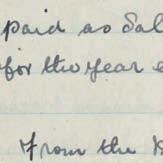 paid as Sal
for the year e
From the